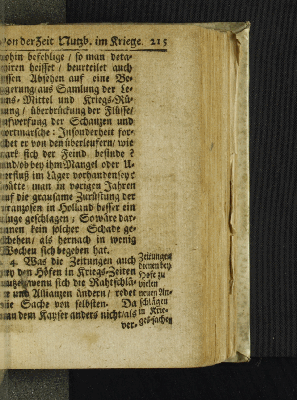 von der Zeit Nutzb. im Kriege. 215
wohin befehlige / so man deta-
heisset / beurteilet auch
Absehen auf eine Be-
gerung / aus Samlung der Le-
Mittel und Kriegs-Rü-
nung / überbrückung der Flüsse /
aufwerfung der Schanzen und
Insonderheit for-
schet er von den überleufern / wie
stark sich der Feind befinde?
und / ob bey ihm Mangel oder U-
berfluß im Läger vorhanden sey?
Hätte man in vorigen Jahren
auf die grausame Zurüstung der
Franzosen in Holland besser ein
Auge geschlagen; So wäre dar-
innen kein solcher Schade ge-
schehen / als hernach in wenig
Wochen sich begeben hat.
4. Was die Zeitungen auch
bey den Höfen in Kriegs-Zeiten
nutzen / wenn sich die Rahtschlä-
ge und Allianzen ändern / redet
die Sache von selbsten. Da
man dem Kayser anders nicht / als
ver-
Zeitungen
dienen bey
Hofe zu
vielen
neuen An-
schlägen
in Krie-
ges-sachen